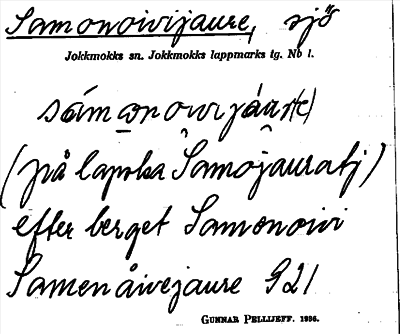 Samonoivijaure, sjö
Jokkmokks sn. Jokkmokks lappmarks tg. Nb l.
sámonoivijáur(e)
(på lapska Samojauratj)
efter berget Samonoivi
Samenåivejaure G21
GUNNAR PELLIJEFF. 1936.